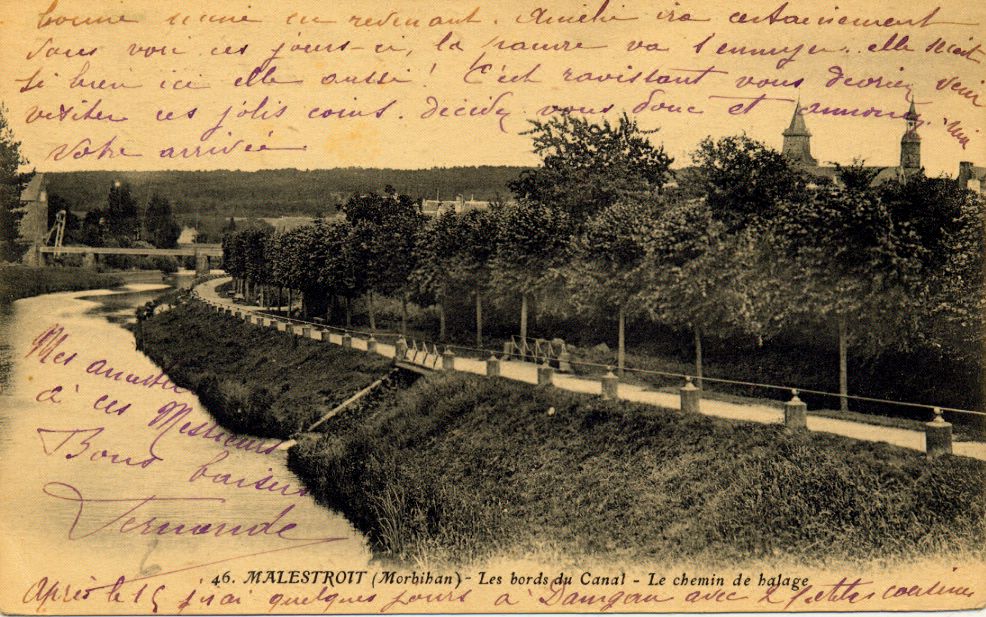 bonne mine en revenant. Amélie ira certainement
vous voir ces jours-ci, la pauvre va s'ennuyer.. elle serait
si bien ici elle aussi ! C'est ravissant vous devriez venir
visiter ces jolis coins. décidez vous donc et annoncez
votre arrivée
Mes amitiés
à ces Messieurs
Bons baisers
Fernande
46. MALESTROIT (Morbihan) - Les bords du Canal - Le chemin de halage
Après le 15 j'irai quelques jours à Damgan avec 2 petites cousines